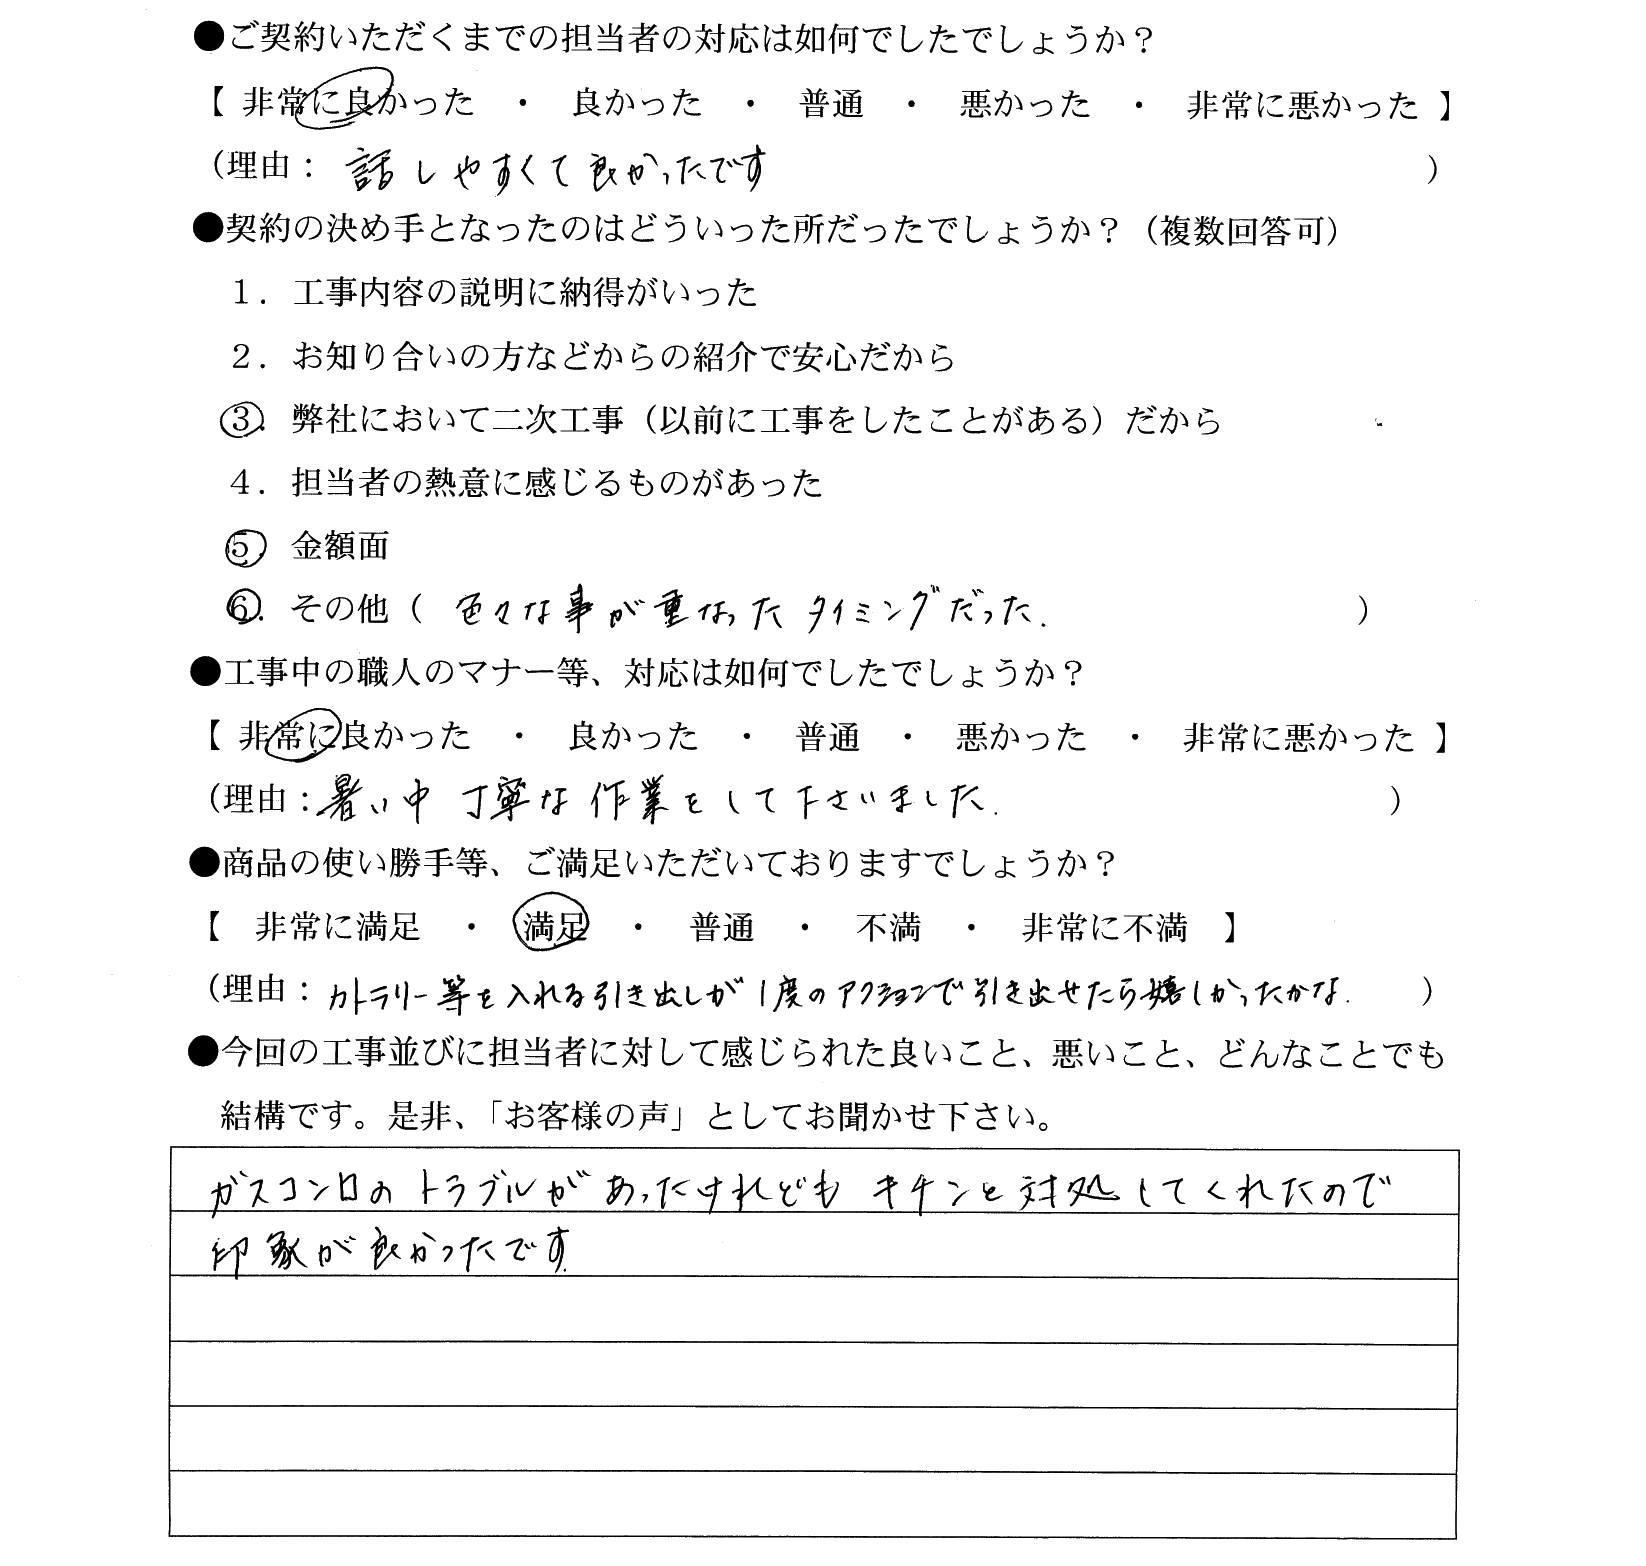 ●ご契約いただくまでの担当者の対応は如何でしたでしょうか？
【 非常に良かった ・ 良かった ・ 普通 ・ 悪かった ・ 非常に悪かった 】
（理由： 話しやすくて良かったです ）
●契約の決め手となったのはどういった所だったでしょうか？（複数回答可）
１．工事内容の説明に納得がいった
２．お知り合いの方などからの紹介で安心だから
３．弊社において二次工事（以前に工事をしたことがある）だから
４．担当者の熱意に感じるものがあった
５．金額面
６．その他（ 色々な事が重なったタイミングだった. ）
●工事中の職人のマナー等、対応は如何でしたでしょうか？
【 非常に良かった ・ 良かった ・ 普通 ・ 悪かった ・ 非常に悪かった 】
（理由：暑い中 丁寧な作業をして下さいました. ）
●商品の使い勝手等、ご満足いただいておりますでしょうか？
【 非常に満足 ・ 満足 ・ 普通 ・ 不満 ・ 非常に不満 】
（理由：カトラリー等を入れる引き出しが1度のアクションで引き出せたら嬉しかったかな. ）
●今回の工事並びに担当者に対して感じられた良いこと、悪いこと、どんなことでも
結構です。是非、「お客様の声」としてお聞かせ下さい。
ガスコンロのトラブルがあったけれどもキチンと対処してくれたので
印象が良かったです.